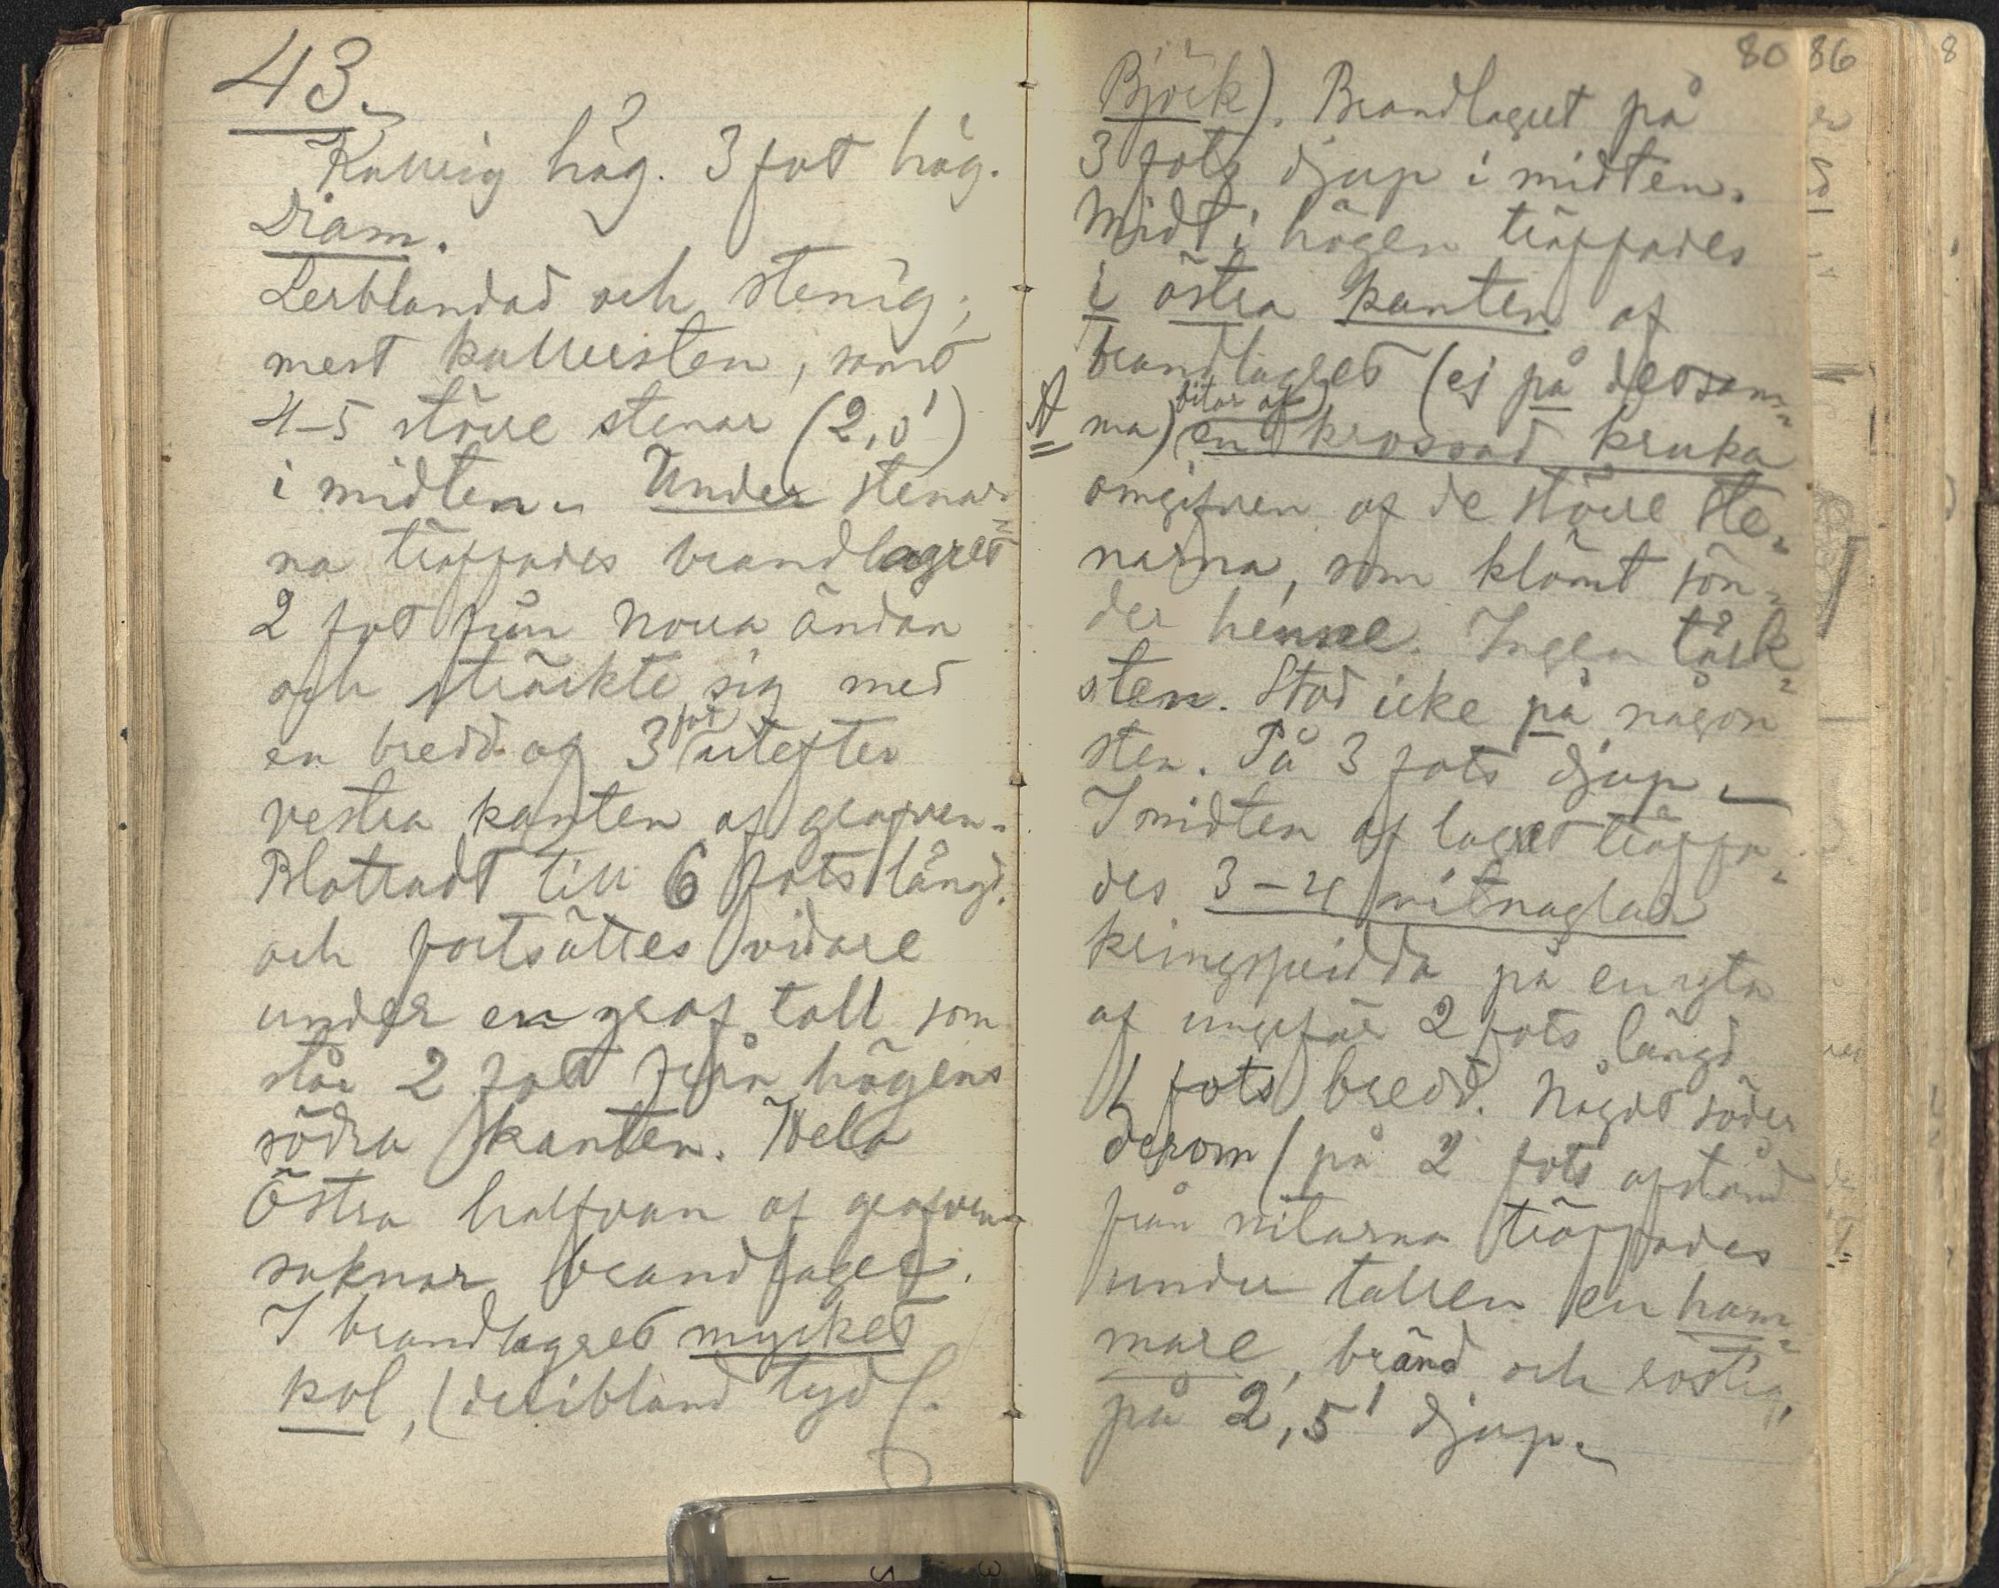 43.
Kullrig hög. 3 fot hög.
Diam.
Lerblandad och stenig;
mest kullersten, samt
4-5 större stenar (2,0')
i midten. Under stenar=
na träffades brandlagret
2 fot från norra ändan
och sträckte sig med
en bredd af 3 fot utefter
vestra kanten af grafven.
Blottadt till 6 fots längd.
och fortsättes vidare
under en graf tall som
står 2 fot från högens
södra kanten. Hela
Östra halfvan af grafven
saknar brandlager.
I brandlagret mycket
kol, (deribland tydl.
80
Björk). Brandlagret på
3 fots djup i midten.
Midt i högen träffades
i östra kanten af
brandlagret (ej på detsam=
A ma) bitar af en krossad kruka
omgifven af de större ste=
narna, som klämt sön=
der henne. Ingen täck=
sten. Stod icke på någon
sten. På 3 fots djup.
I midten af lagret träffa=
des 3-4 nitnaglar
kringspridda på en yta
af ungefär 2 fots längd
1 fots bredd. Något söder
derom (på 2 fots afstånd
från nitarna träffades
under tallen en ham=
mare, bränd och rostig,
på 2,5' djup.
86
8